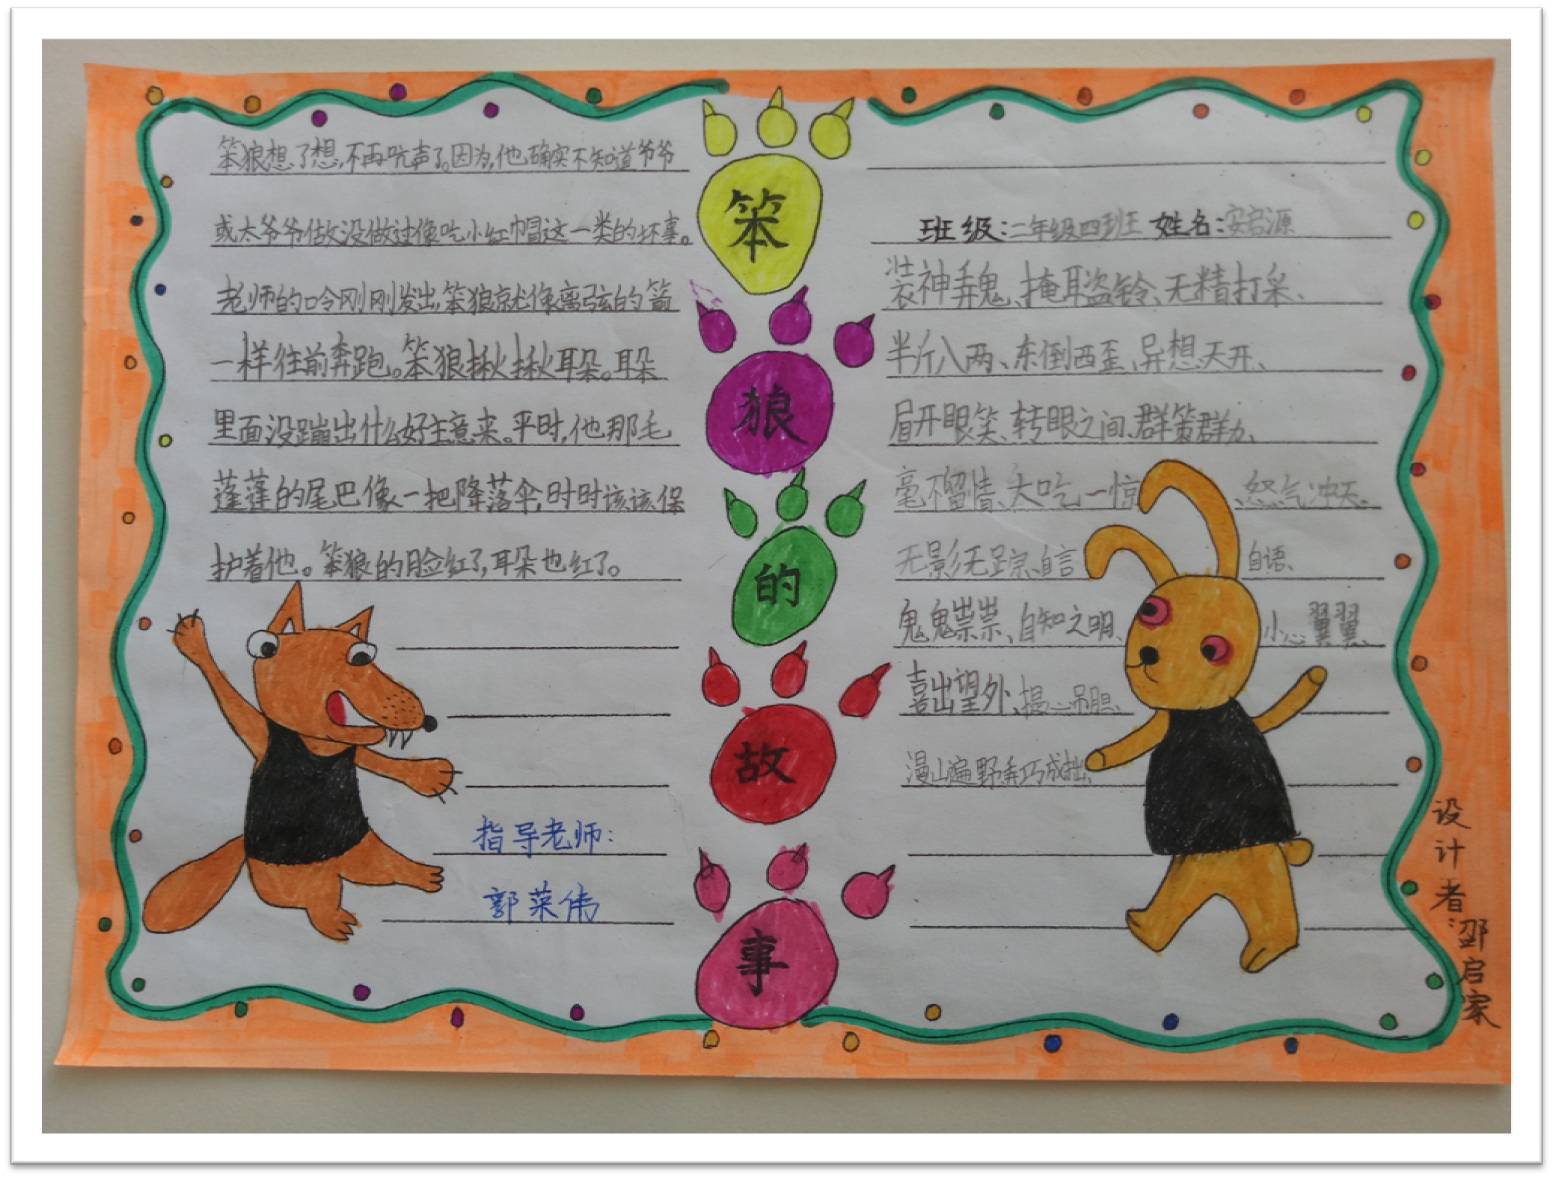 笨狼想了想,不再吭声了,因为,他确实不知道爷爷
或太爷爷做没做过像吃小红帽这一类的坏事。
老师的口令刚刚发出,笨狼就像离弦的箭
一样往前奔跑。笨狼揪揪耳朵。耳朵
里面没蹦出什么好主意来。平时,他那毛
蓬蓬的尾巴像一把降落伞,时时该该保
护着他。笨狼的脸红了,耳朵也红了。
指导老师:
郭菜伟
笨
狼
的
故
事
班级:二年级四班 姓名:安启源
装神弄鬼、掩耳盗铃、无精打采、
半斤八两、东倒西歪、异想天开、
眉开眼笑、转眼之间、群策群力、
毫不留情、大吃一惊、怒气冲天、
无影无踪、自言自语、
鬼鬼祟祟、自知之明、小心翼翼、
喜出望外、提心吊胆、
漫山遍野、弄巧成拙、
设计者:邵启家